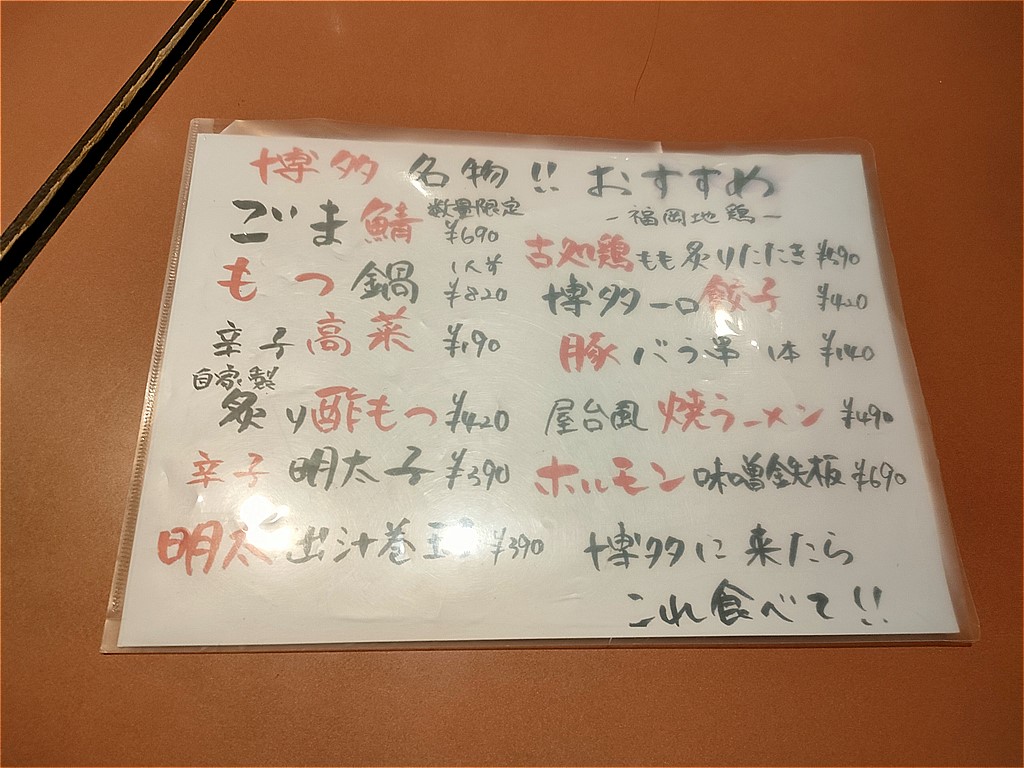 博多名物!! おすすめ
ごま鯖 数量限定 ¥690
もつ鍋 1人前 ¥820
辛子高菜 ¥190
自家製
炙り酢もつ ¥420
辛子明太子 ¥390
明太出汁巻玉子 ¥390
-福岡地鶏-
古処鶏もも炙りたたき ¥590
博多一口餃子 ¥420
豚バラ串 1本 ¥140
屋台風焼ラーメン ¥490
ホルモン味噌鉄板 ¥690
博多に来たら
これ食べて!!